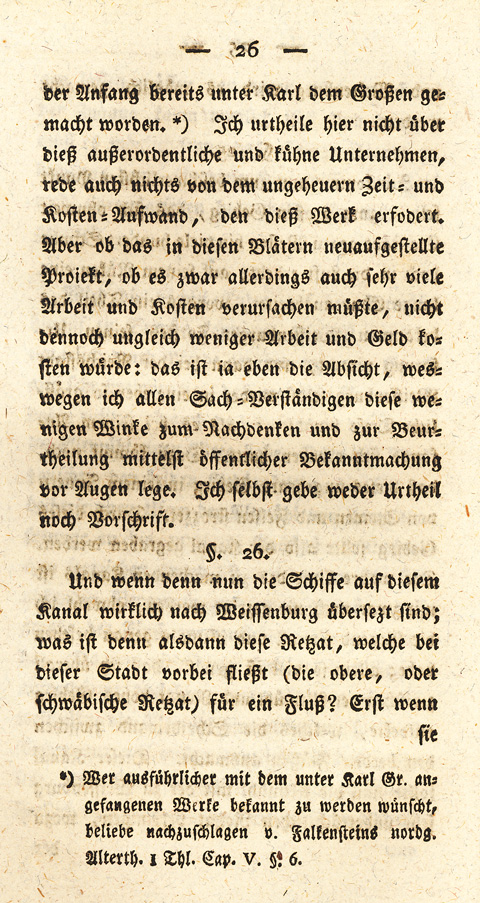 — 26 —
der Anfang bereits unter Karl dem Großen ge-
macht worden. *) Ich urtheile hier nicht über
dieß außerordentliche und kühne Unternehmen,
rede auch nichts von dem ungeheuern Zeit- und
Kosten-Aufwand, den dieß Werk erfodert.
Aber ob das in diesen Blätern neuaufgestellte
Proiekt, ob es zwar allerdings auch sehr viele
Arbeit und Kosten verursachen müßte, nicht
dennoch ungleich weniger Arbeit und Geld ko-
sten würde: das ist ia eben die Absicht, wes-
wegen ich allen Sach-Verständigen diese we-
nigen Winke zum Nachdenken und zur Beur-
theilung mittelst öffentlicher Bekanntmachung
vor Augen lege. Ich selbst gebe weder Urtheil
noch Vorschrift.
§. 26.
Und wenn denn nun die Schiffe auf diesem
Kanal wirklich nach Weissenburg übersezt sind;
was ist denn alsdann diese Retzat, welche bei
dieser Stadt vorbei fließt (die obere, oder
schwäbische Retzat) für ein Fluß? Erst wenn
sie
*) Wer ausführlicher mit dem unter Karl Gr. an-
gefangenen Werke bekannt zu werden wünscht,
beliebe nachzuschlagen v. Falkensteins nordg.
Alterth. 1 Thl. Cap. V. §. 6.